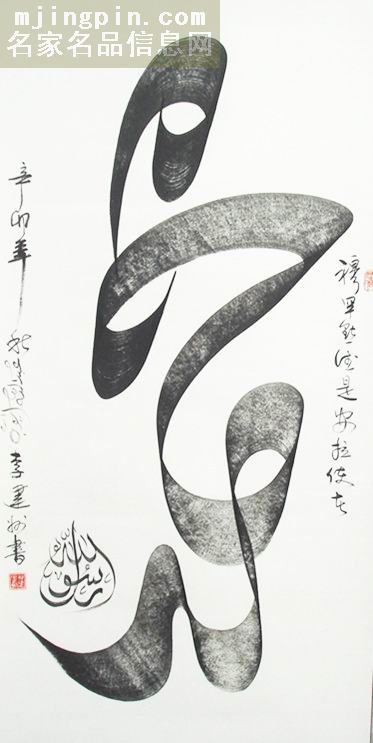 mjingpin.com
名家名品信息网
محمد
رسول الله
穆罕默德是安拉使者
辛卯年
李建 書